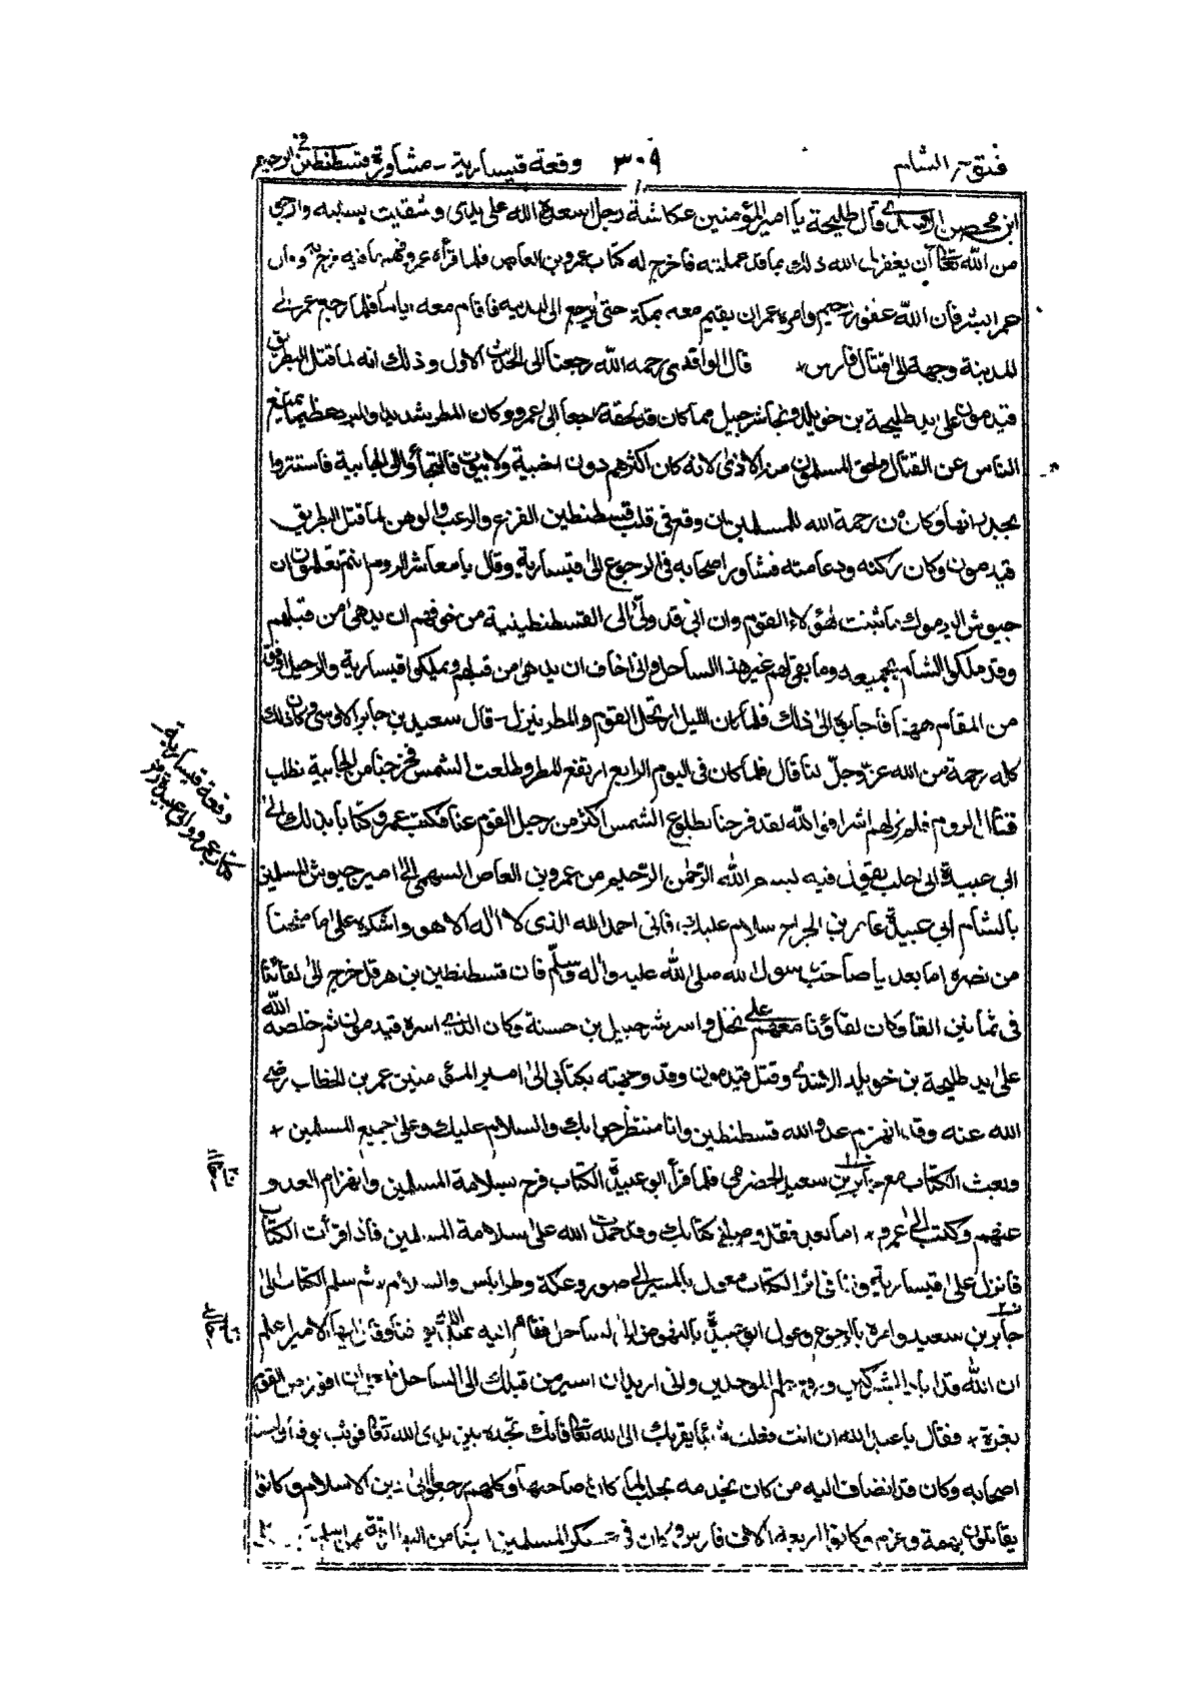 فتوح الشام ٣٠٩ وقعة قيسارية - مشاورة قسطنطين في الرحيم
ابن محصن الاسدي قال طليحة يا امير المؤمنين عكاشة رجل اسعده الله على يدي و شقيت بسببه وارجو
من الله تعالى ان يغفر لي الله ذلك بما قد عملته فاخرج له كتاب عمرو بن العاص فلما قرأه عمر وفهم ما فيه فرح به وقال
عمر ابشر فان الله غفور رحيم وامره عمر ان يقيم معه بمكة حتى يرجع الى المدينة فاقام معه اياما فلما رجع عمر الى
المدينة وجهه الى قتال فارس قال الواقدي رحمه الله رجعنا الى الحديث الاول وذلك انه لما قتل البطريق
قيدمون على يد طليحة بن خويلد ونجا شرحبيل مما كان قد لحقه رجعا الى عمرو وكان المطر شديدا والبرد عظيما يمنع
الناس عن القتال ولحق المسلمون منه الاذى لانه كان اكثرهم دون اخبية ولا بيوت فالتجأوا الى الجابية فاستتروا
بجدرانها وكان من رحمة الله للمسلمين ان وقع في قلب قسطنطين الفزع والرعب والوهن لما قتل البطريق
قيدمون وكان ركنه ودعامته فشاور اصحابه في الرجوع الى قيسارية وقال يا معاشر الروم انتم تعلمون ان
جيوش اليرموك ما ثبتت لهؤلاء القوم وان ابي قد ولى الى القسطنطينية من خوفهم ان يدهى من قبلهم
وقد ملكوا الشام بجميعه وما بقي لهم غير هذا الساحل واني اخاف ان يدهى من قبلهم ويملكوا قيسارية والرحيل اوفق
من المقام ههنا فأجابوه الى ذلك فلما كان الليل ارتحل القوم والمطر ينزل - قال سعيد بن جابر الاوسي وكان ذلك
كله رحمة من الله عز وجل لنا قال فلما كان في اليوم الرابع ارتفع المطر وطلعت الشمس فخرجنا من الجابية نطلب
قتال الروم فلم نر لهم اثرا فوالله لقد فرحنا بطلوع الشمس اكثر من رحيل القوم عنا فكتب عمرو كتابا بذلك الى
ابي عبيدة الى حلب يقول فيه بسم الله الرحمن الرحيم من عمرو بن العاص السهمي الى امير جيوش المسلمين
بالشام ابي عبيدة عامر بن الجراح سلام عليك فاني احمد الله الذي لا اله الا هو واشكره على ما منحنا
من نصره اما بعد يا صاحب رسول الله صلى الله عليه واله وسلم فان قسطنطين بن هرقل خرج الى لقائنا
في ثمانين الفا وكان لقاؤنا معهم على نخل واسر شرحبيل بن حسنة وكان الذي اسره قيدمون ثم خلصه الله
على يد طليحة بن خويلد الاسدي وقتل قيدمون وقد وجهته بكتابي الى امير المؤمنين عمر بن الخطاب رضي
الله عنه وقد انهزم عدو الله قسطنطين وانا منتظر جوابك والسلام عليك وعلى جميع المسلمين +
وبعث الكتاب مع جابر بن سعيد الحضرمي فلما قرأ ابو عبيدة الكتاب فرح بسلامة المسلمين وانهزام العدو
عنهم وكتب الى عمرو + اما بعد فقد وصلني كتابك وقد حمدت الله على سلامة المسلمين فاذا قرأت الكتاب
فانزل على قيسارية وانا في اثر الكتاب معول بالمسير الى صور وعكة وطرابلس والسلام + ثم سلم الكتاب الى
جابر بن سعيد وامره بالرجوع وعول ابو عبيدة بالنهوض الى الساحل فقام اليه عبد الله يوقنا وقال ايها الامير اعلم
ان الله قد اباد المشركين و الموحدين واني اريد ان اسير من قبلك الى الساحل افوز من القوم
بغرة + فقال يا عبد الله ان انت فعلت شيئا يقربك الى الله تعالى فانك تجده بين يدي الله تعالى فوثب يوقنا
اصحابه وكان قد انضاف اليه من كان يخدمه بحلب كان صاحبها وكلهم رجعوا الى دين الاسلام وكانوا
يقاتلون بهمة وعزم وكانوا اربعة الاف فارس وكان في عسكر المسلمين ايضا من البطارقة
وقعة قيسارية
كتاب عمرو وابي عبيدة